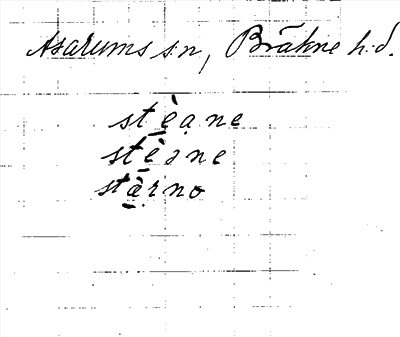 Asarums sn, Bräkne hd.
stè̱ạne
stè̱ɔne
stà̱rno